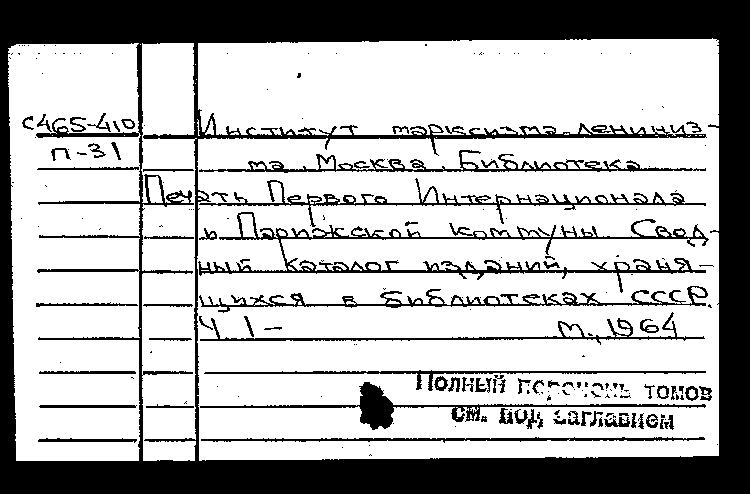 С465-410
П-31
Институт марксизма-лениниз-
ма. Москва. Библиотека
Печать Первого Интернационала
и Парижской коммуны. Свод-
ный каталог изданий, храня-
щихся в библиотеках СССР.
Ч 1- М., 1964
Полный перечень томов
см. под заглавием